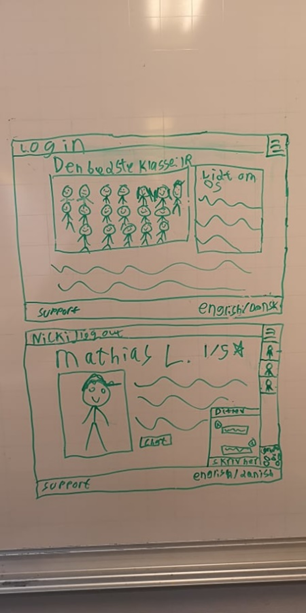 Login
Den bedste klasse i R
Lidt om
os
support
engrish/Dansk
Nicki/log out
Mathias L. 1/5
support
skriv her
engrish/danish